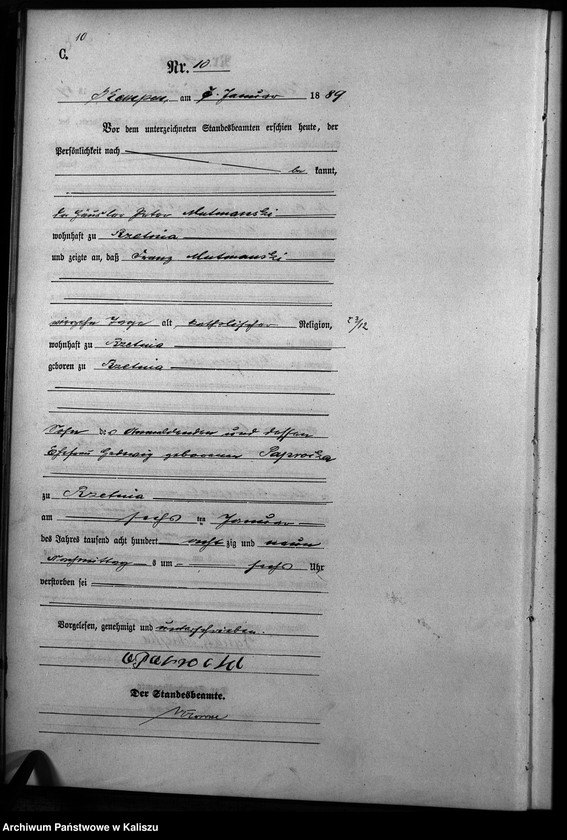 10
C.
Nr. 10
Kempen, am 7. Januar 1889
Vor dem unterzeichneten Standesbeamten erschien heute, der
Persönlichkeit nach
be kannt,
der Häusler Peter Mutmanski
wohnhaft zu Rzetnia
und zeigte an, daß Franz Mutmanski
vierzehn Tage alt, katholischer Religion,
wohnhaft zu Rzetnia
geboren zu Rzetnia
Sohn des Anmeldenden und dessen
Ehefrau Hedwig geborener Paprocka
zu Rzetnia
am sechs ten Januar
des Jahres tausend acht hundert acht zig und neun
Nachmittag s um sechs Uhr
verstorben sei
Vorgelesen, genehmigt und unterschrieben.
Der Standesbeamte.
Archiwum Państwowe w Kaliszu